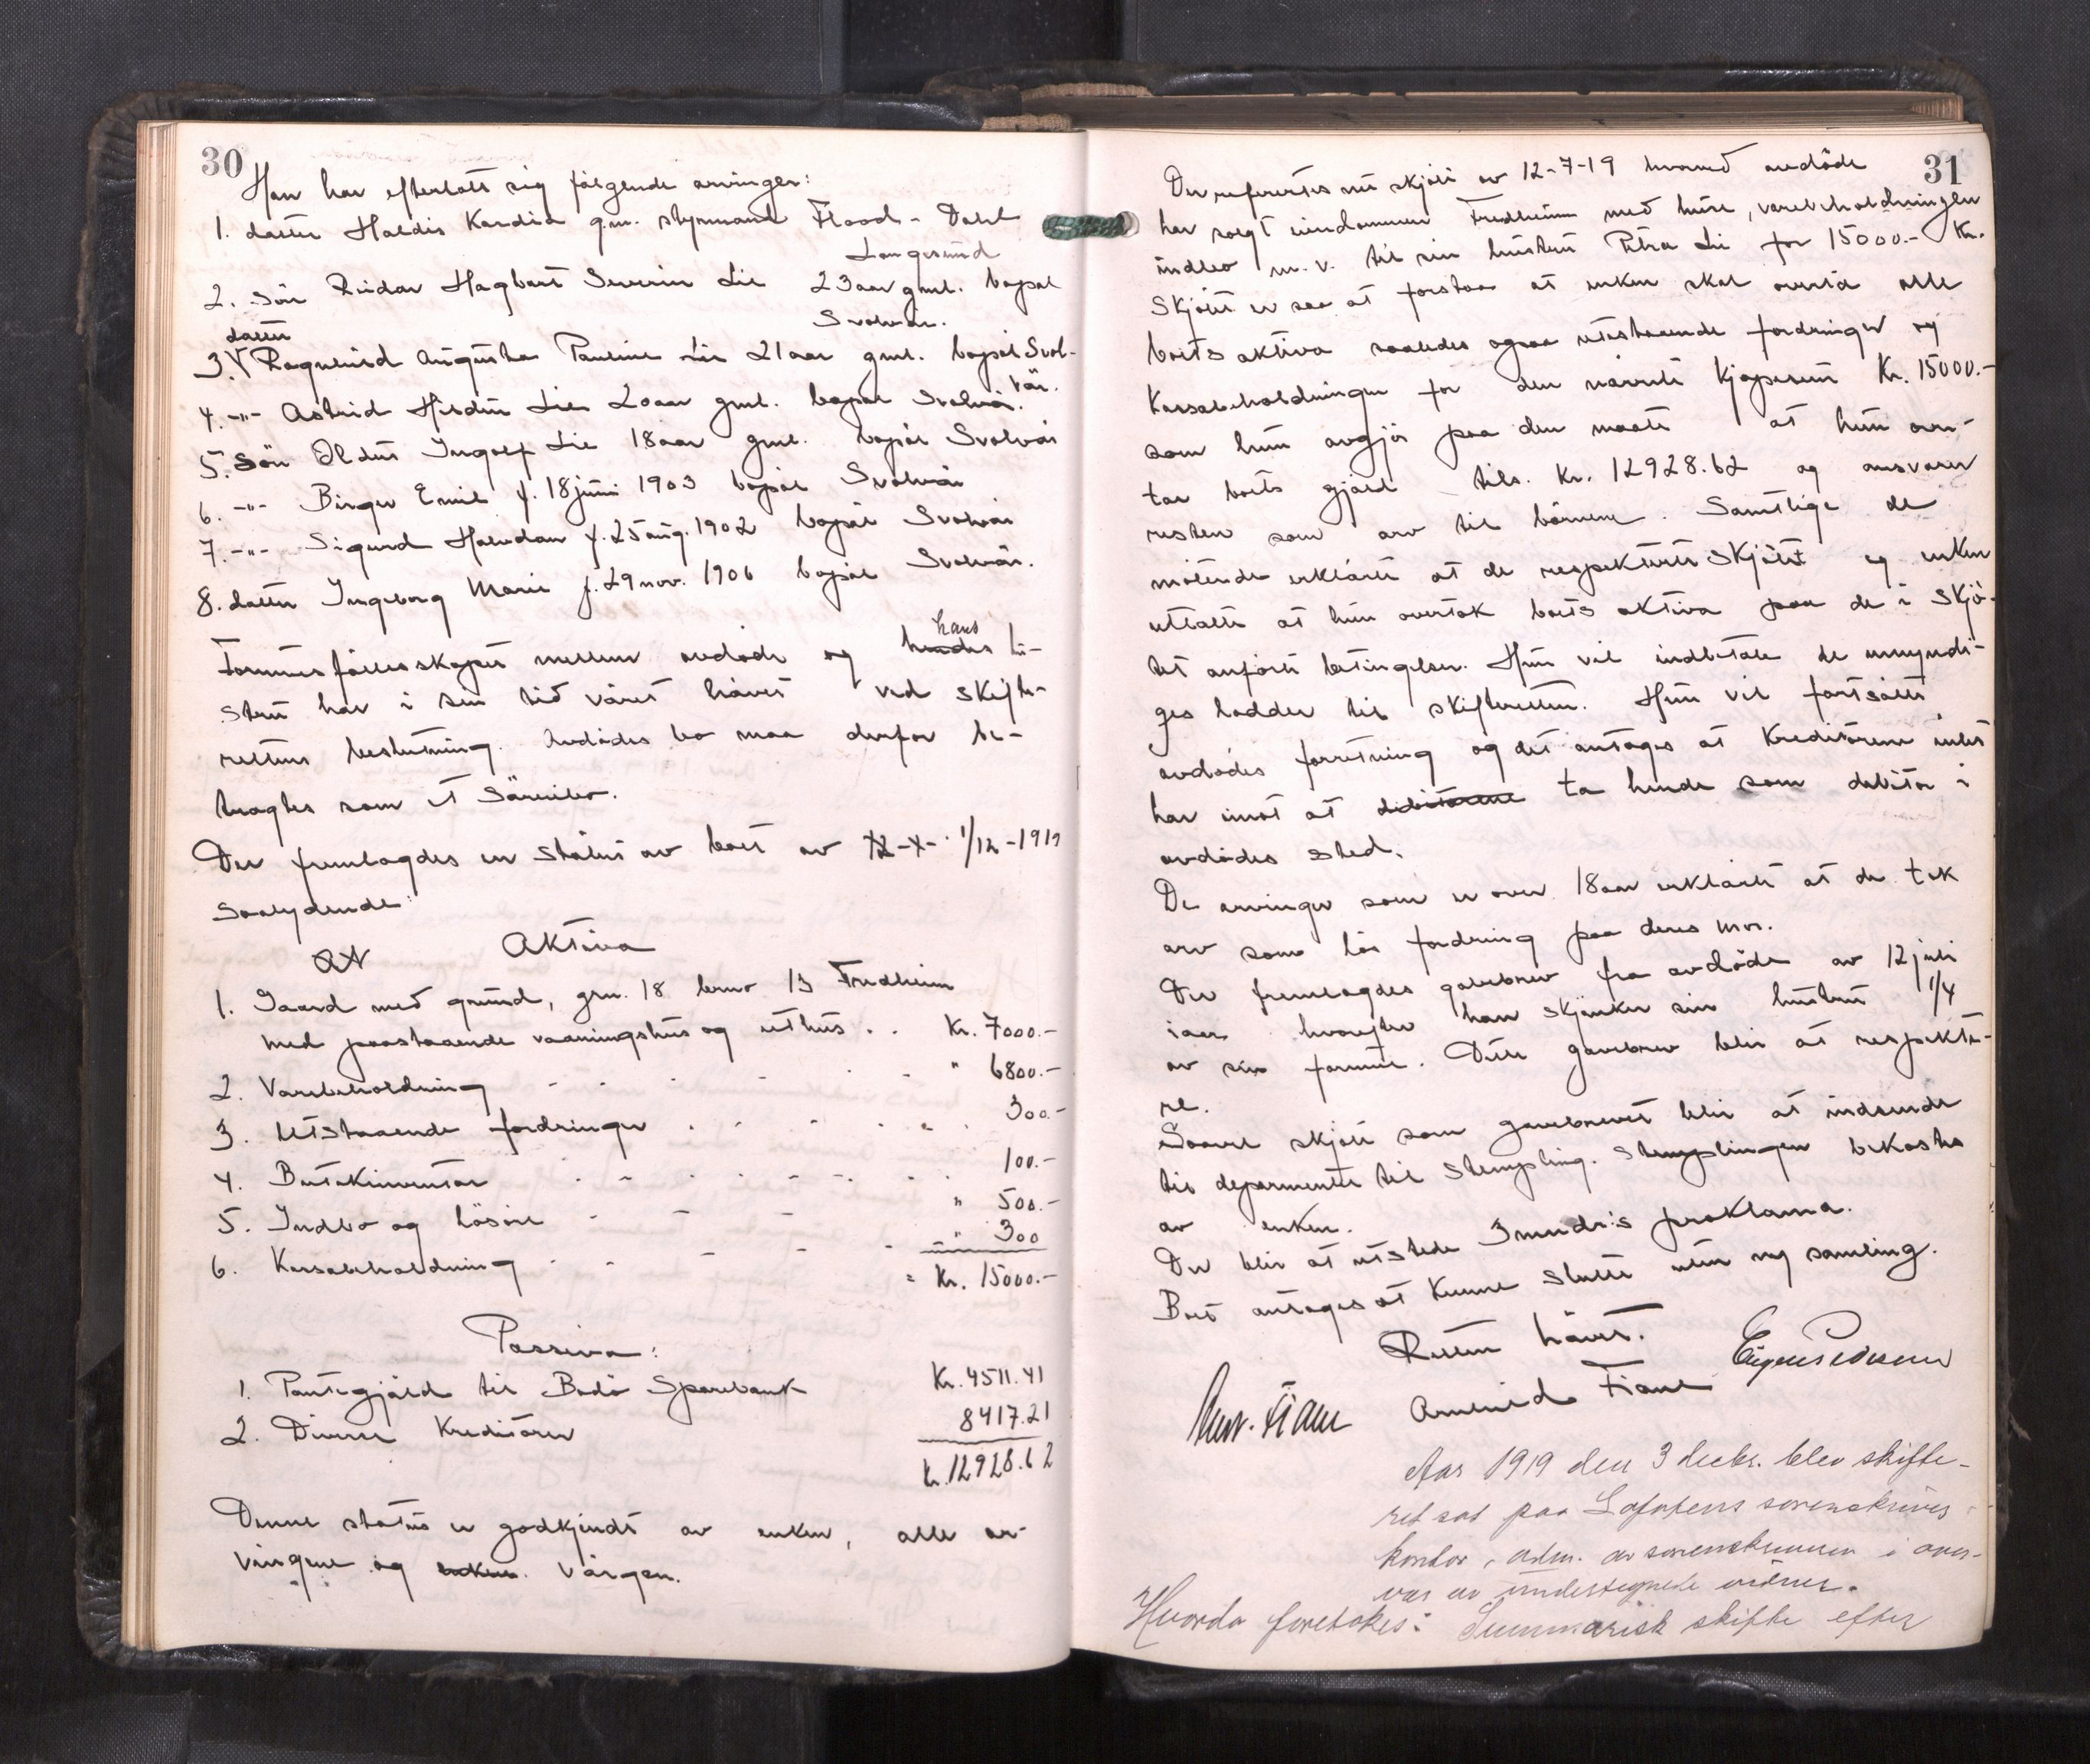 30
Han har efterlatt sig følgende arvinger:
1. datter Haldis Kardia g.m. styrmand Flood-Dahl
Langesund
2. Søn Reidar Hagbart Severin Lie 23 aar gml. bopæl
Svolvær.
datter
3. V Ragnhild Augusta Pauline Lie 21 aar gml. bopæl Svol-
vær.
4. -"- Astrid Hildur Lie 20 aar gml. bopæl Svolvær.
5. Søn Oldus Ingolf Lie 18 aar gml. bopæl Svolvær
6. -"- Birger Emil f. 18 juni 1903 bopæl Svolvær
7. -"- Sigurd Halvdan f. 25 aug. 1902 bopæl Svolvær
8. datter Ingeborg Marie f. 29 nov. 1906 bopæl Svolvær.
hans
Formuesfællesskapet mellem avdøde og hendes hu-
stru har i sin tid været hævet ved skifte-
rettens beslutning. Avdødes bo maa derfor be-
tragtes som et Særeiebo.
Der fremlagdes en status av boet av 12-X- 1/12-1919
saalydende:
Aktiva
1. Gaard med grund, grn. 18 brno 13 Fredheim
med paastaaende vaaningshus og uthus . . Kr. 7000.-
2. Varebeholdning - - - - - - " 6800.-
3. Utstaaende fordringer . . . . . . 300.-
4. Butikinventar - - - - - - 100.-
5. Indbo og løsøre - - - - " 500.-
6. Kassabeholdning - - - - - " 300
= Kr. 15000.-
Passiva:
1. Pantegjæld til Bodø Sparebank Kr. 4511.41
2. Diverse Kreditorer 8417.21
Kr. 12928.62
Denne status er godkjendt av enken, alle ar-
vingene og enken. værgen.
31
Der refereres nu skjøte av 12-7-19 hvorved avdøde
har solgt eiendommen Fredheim med huse, varebeholdningen
indbo m.v. til sin hustru Petra Lie for 15000.- Kr.
Skjøtet er saa at forstaa at enken skal overta alle
boets aktiva saaledes ogsaa utestaaende fordringer og
Kassabeholdningen for den nævnte kjøpesum Kr. 15000.-
som hun avgjør paa den maate at hun over-
tar boets gjæld tils. Kr. 12928.62 og ansvarer
resten som arv til børnene. Samtlige de
møtende erklærte at de respekterte Skjøtet og enken
uttalte at hun overtok boets aktiva paa de i Skjø-
tet anførte betingelser. Hun vil indbetale de umyndi-
ges lodder til skifteretten. Hun vil fortsætte
avdødes forretning og det antages at Kreditorene intet
har imot at debitorene ta hende som debitor i
avdødes sted.
De arvinger som er over 18 aar erklærte at de tok
arv som løs fordring paa deres mor.
Der fremlagdes gavebrev fra avdøde av 12 juli
iaar hvorefter han skjænker sin hustru 1/4
av sin formue. Dette gavebrev blir at respekte-
re.
Saavel skjøte som gavebrevet blir at indsende
til departementet til Stempling. Stemplingen bekostes
av enken.
Der blir at utstede 3 mndr.s proklama.
Boet antages at kunne slutte uten ny samling.
Retten hævet.
Arnt. Fiane Arnhild Fiane
Aar 1919 den 3 decbr. blev skifte-
ret sat paa Lofotens sorenskriver-
kontor, adm. av sorenskriveren i over-
vær av undertegnede vidner.
Hvorda foretokes: Summarisk skifte efter